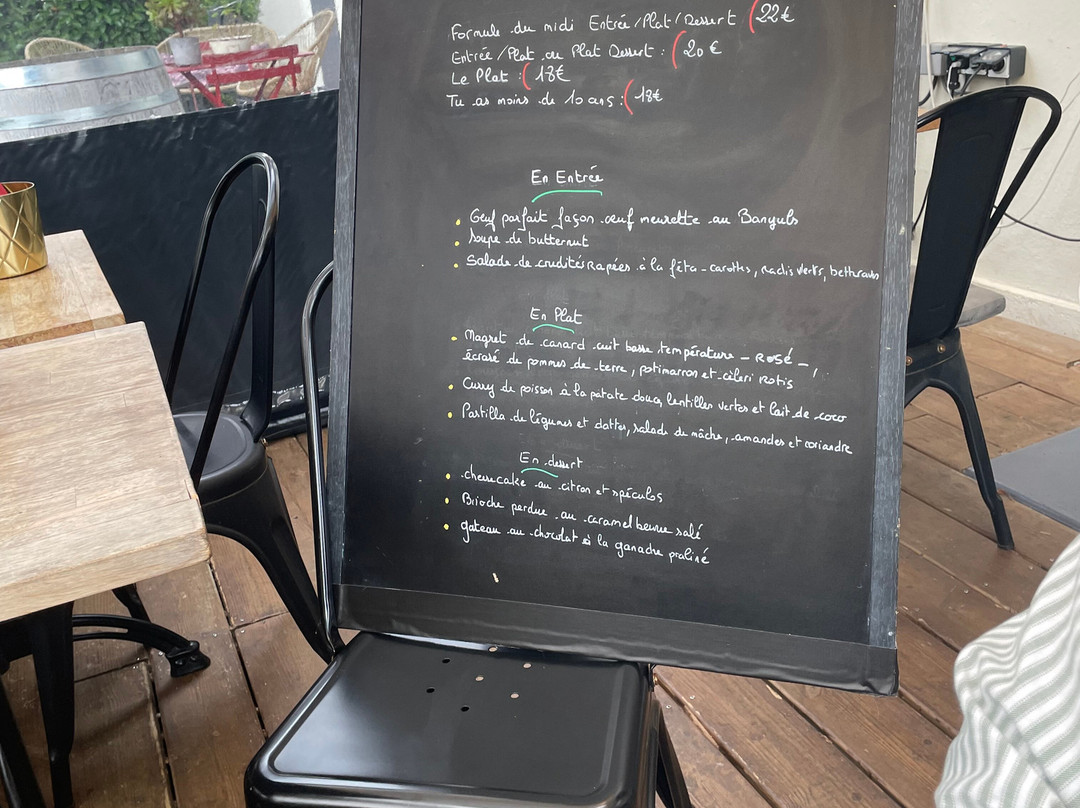 Formule du midi Entrée/Plat/Dessert (22€
Entrée/Plat ou Plat Dessert : (20 €
Le Plat : (18€
Tu as moins de 10 ans : (18€
En Entrée
Oeuf parfait façon oeuf meurette au Banyuls
Soupe de butternut
Salade de crudités Rapées à la féta - carottes, radis verts, betteraves
En Plat
Magret de canard cuit basse température - ROSÉ -,
écrasé de pommes de terre, potimarron et céleri rotis
Curry de poisson à la patate douce, lentilles vertes et lait de coco
Pastilla de légumes et dattes, salade de mâche, amandes et coriandre
En dessert
cheesecake au citron et spéculos
Brioche perdue au caramel beurre salé
gateau au chocolat à la ganache praliné